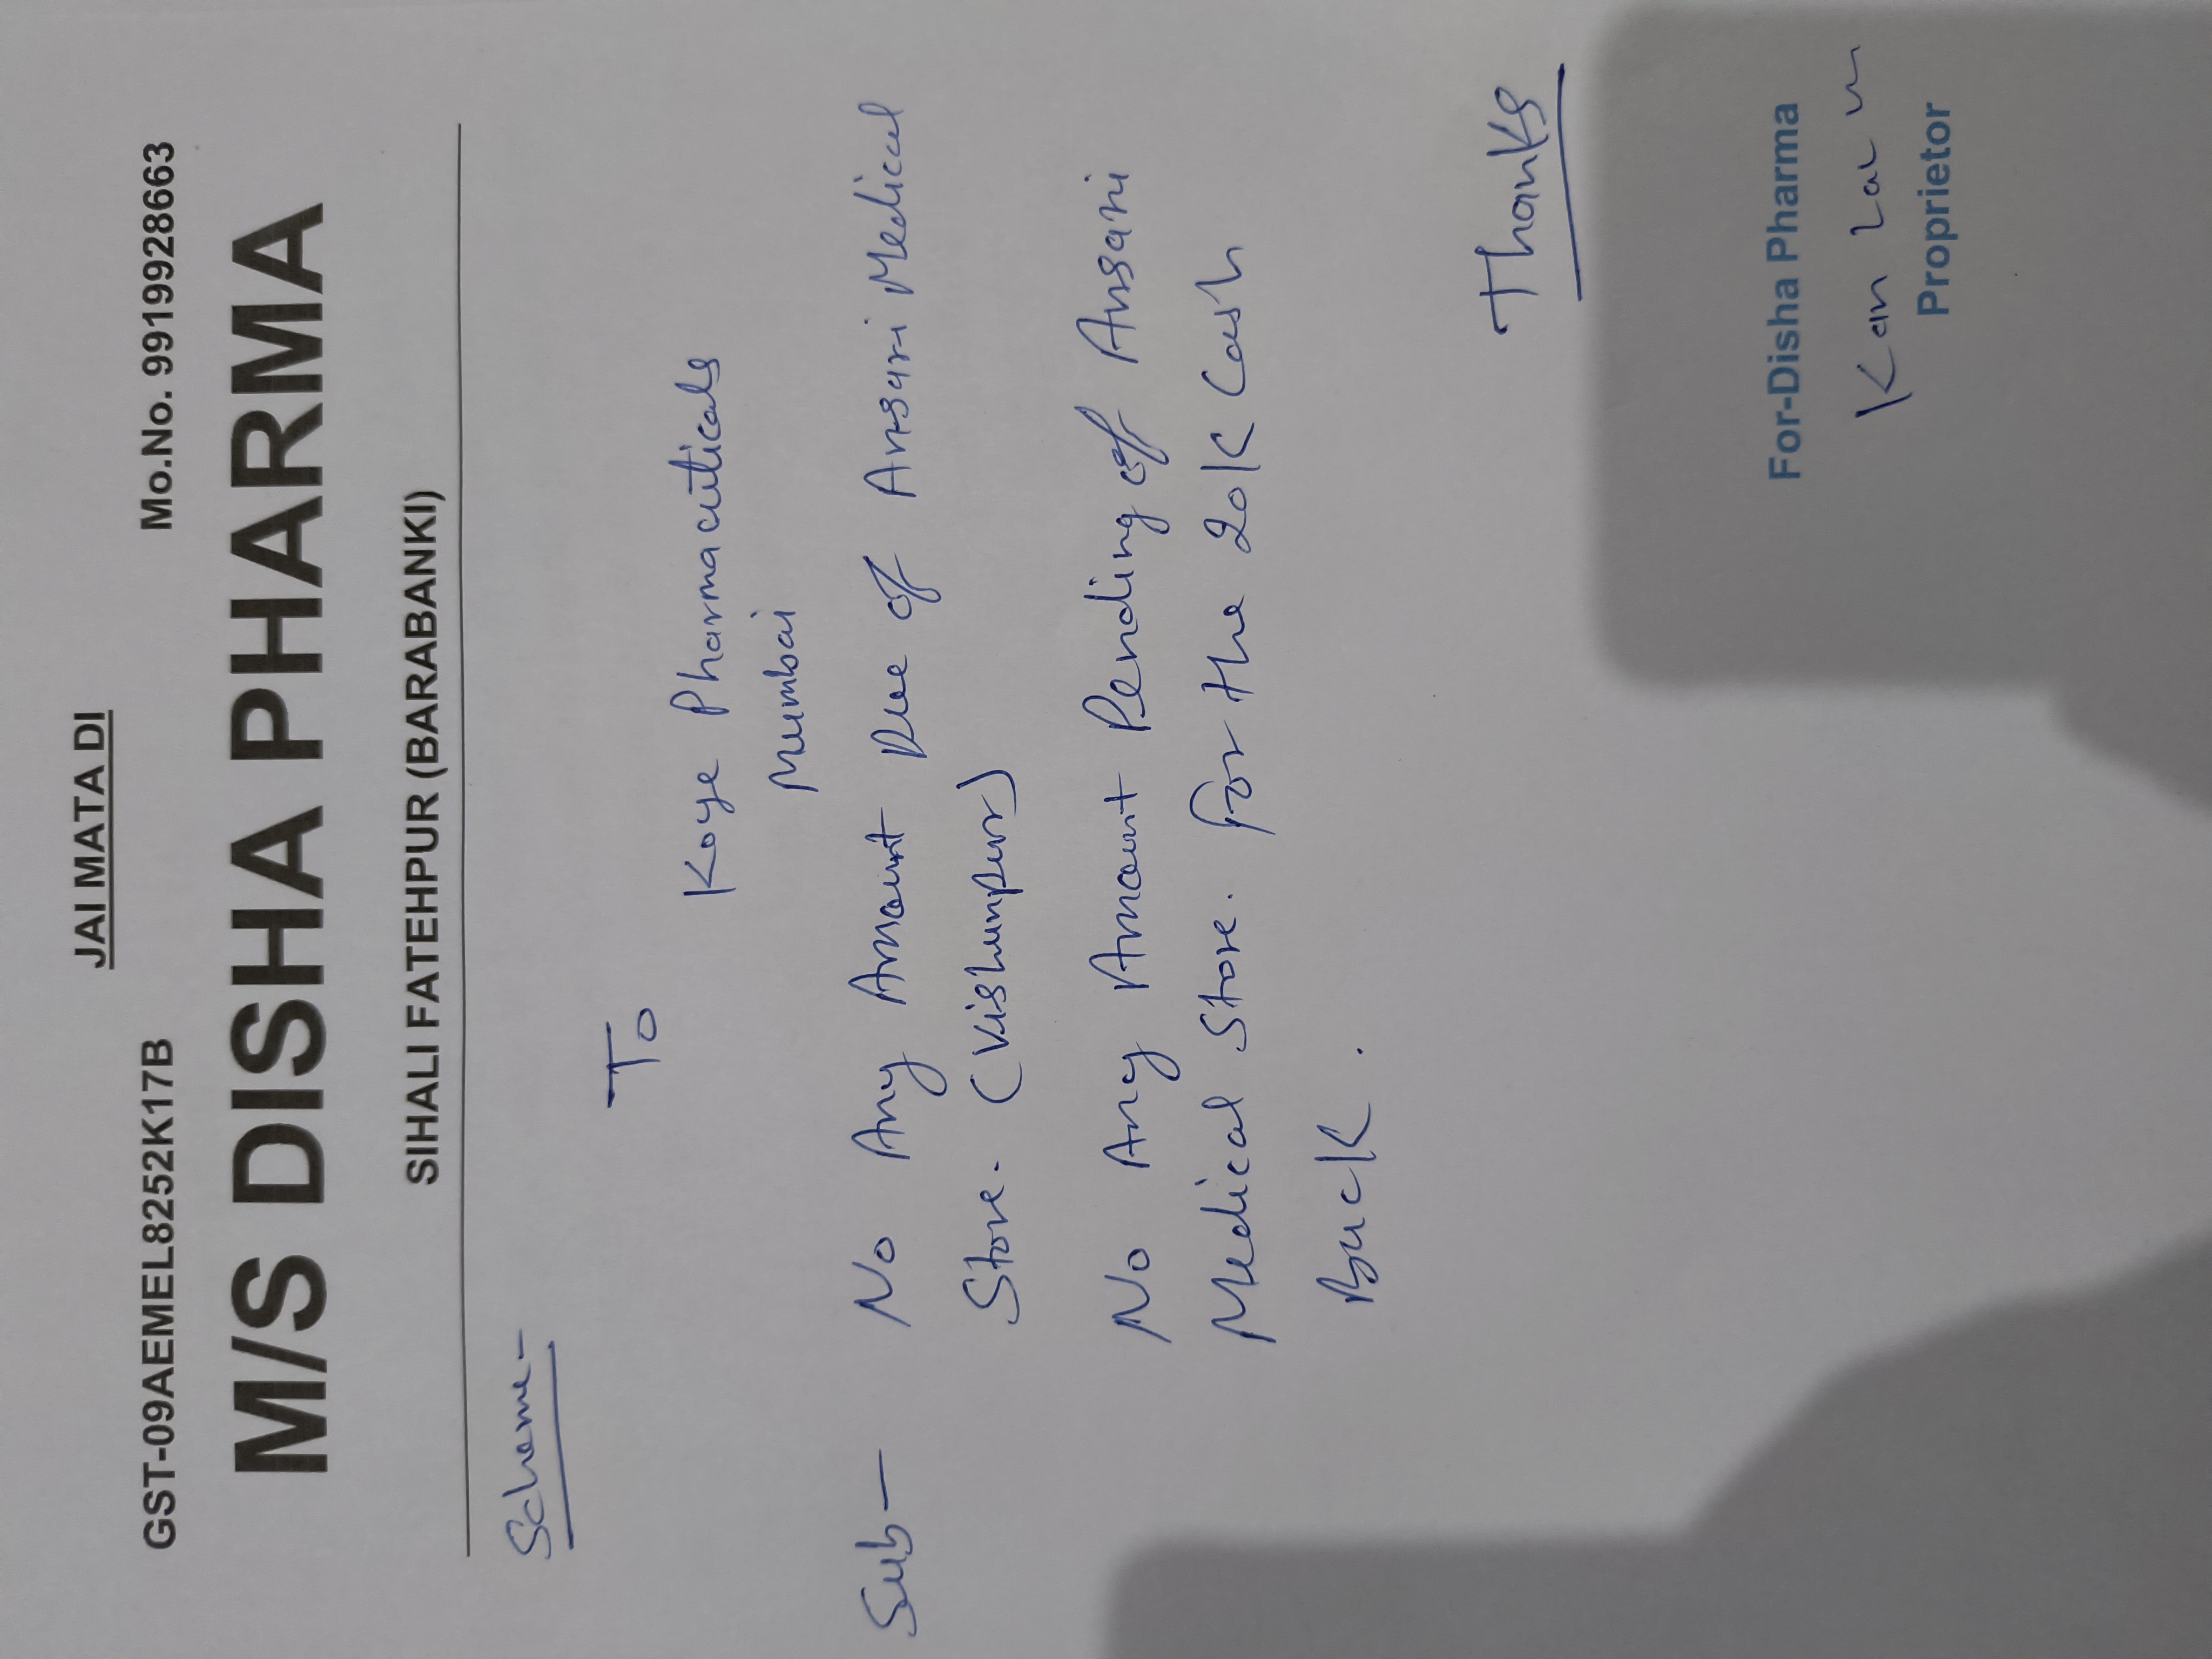 JAI MATA DI
GST-09AEMEL8252K17B Mo.No. 9919928663
M/S DISHA PHARMA
SIHALI FATEHPUR (BARABANKI)
Scheme-
To
Koye Pharmaceuticals
Mumbai
Sub- No Any Amount Due of Ansari Medical
Store. (Vishunpur)
No Any Amount Pending of Ansari
Medical Store. For the 20K Cash
Back.
Thanks
For-Disha Pharma
Proprietor